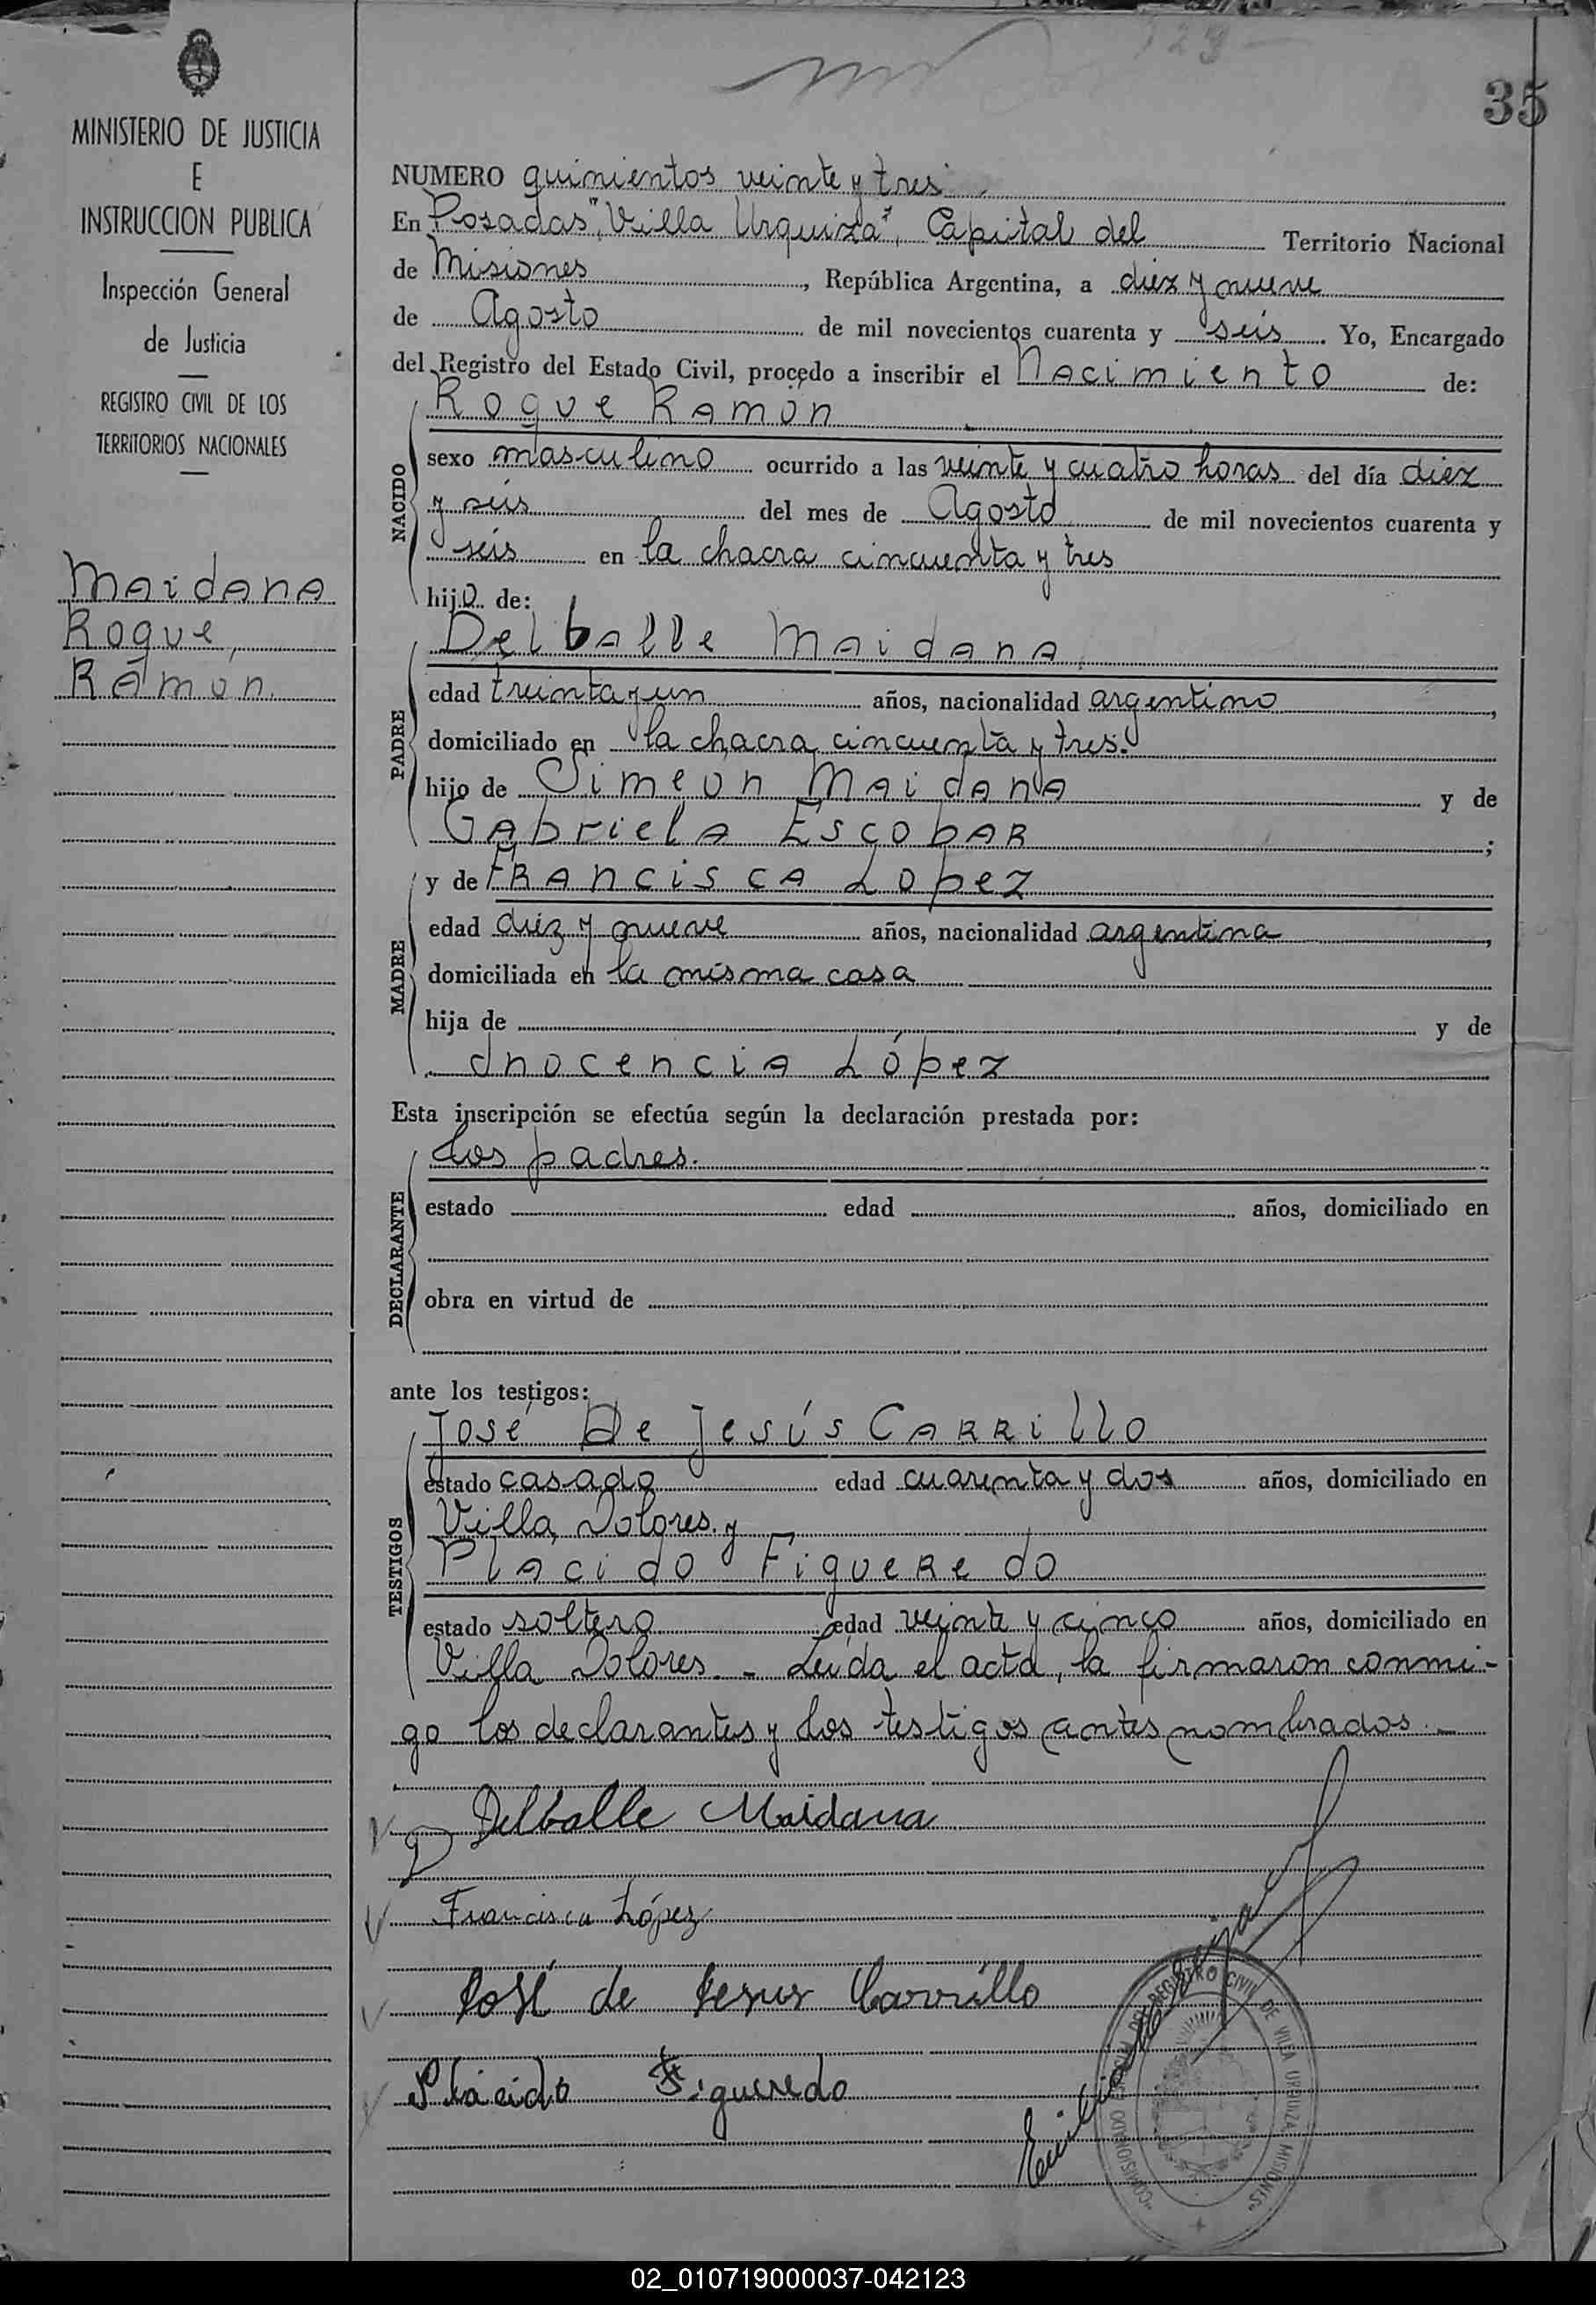 35
MINISTERIO DE JUSTICIA
E
INSTRUCCION PUBLICA
Inspección General
de Justicia
REGISTRO CIVIL DE LOS
TERRITORIOS NACIONALES
Maidana
Roque,
Ramon.
NUMERO quinientos veinte y tres
En Posadas, "Villa Urquiza", Capital del Territorio Nacional
de Misiones, República Argentina, a diez y nueve
de Agosto de mil novecientos cuarenta y seis. Yo, Encargado
del Registro del Estado Civil, procedo a inscribir el Nacimiento de:
Roque Ramón
NACIDO
sexo masculino ocurrido a las veinte y cuatro horas del día diez
y seis del mes de Agosto de mil novecientos cuarenta y
seis en la chacra cincuenta y tres
hijo de:
Delballe Maidana
PADRE
edad treinta y un años, nacionalidad argentino,
domiciliado en la chacra cincuenta y tres.
hijo de Simeón Maidana y de
Gabriela Escobar;
y de Francisca Lopez
MADRE
edad diez y nueve años, nacionalidad argentina,
domiciliada en la misma casa
hija de y de
Inocencia López
Esta inscripción se efectúa según la declaración prestada por:
Los padres.
DECLARANTE
estado edad años, domiciliado en
obra en virtud de
ante los testigos:
José De Jesús Carrillo
TESTIGOS
estado casado edad cuarenta y dos años, domiciliado en
Villa Dolores. y
Placido Figueredo
estado soltero edad veinte y cinco años, domiciliado en
Villa Dolores. - Leída el acta, la firmaron conmi-
go los declarantes y los testigos antes nombrados. -
Delballe Maidana
Francisca López
José de Jesus Carrillo
Plácido Figueredo
REGISTRO CIVIL DE VILLA URQUIZA MISIONES
02_010719000037-042123